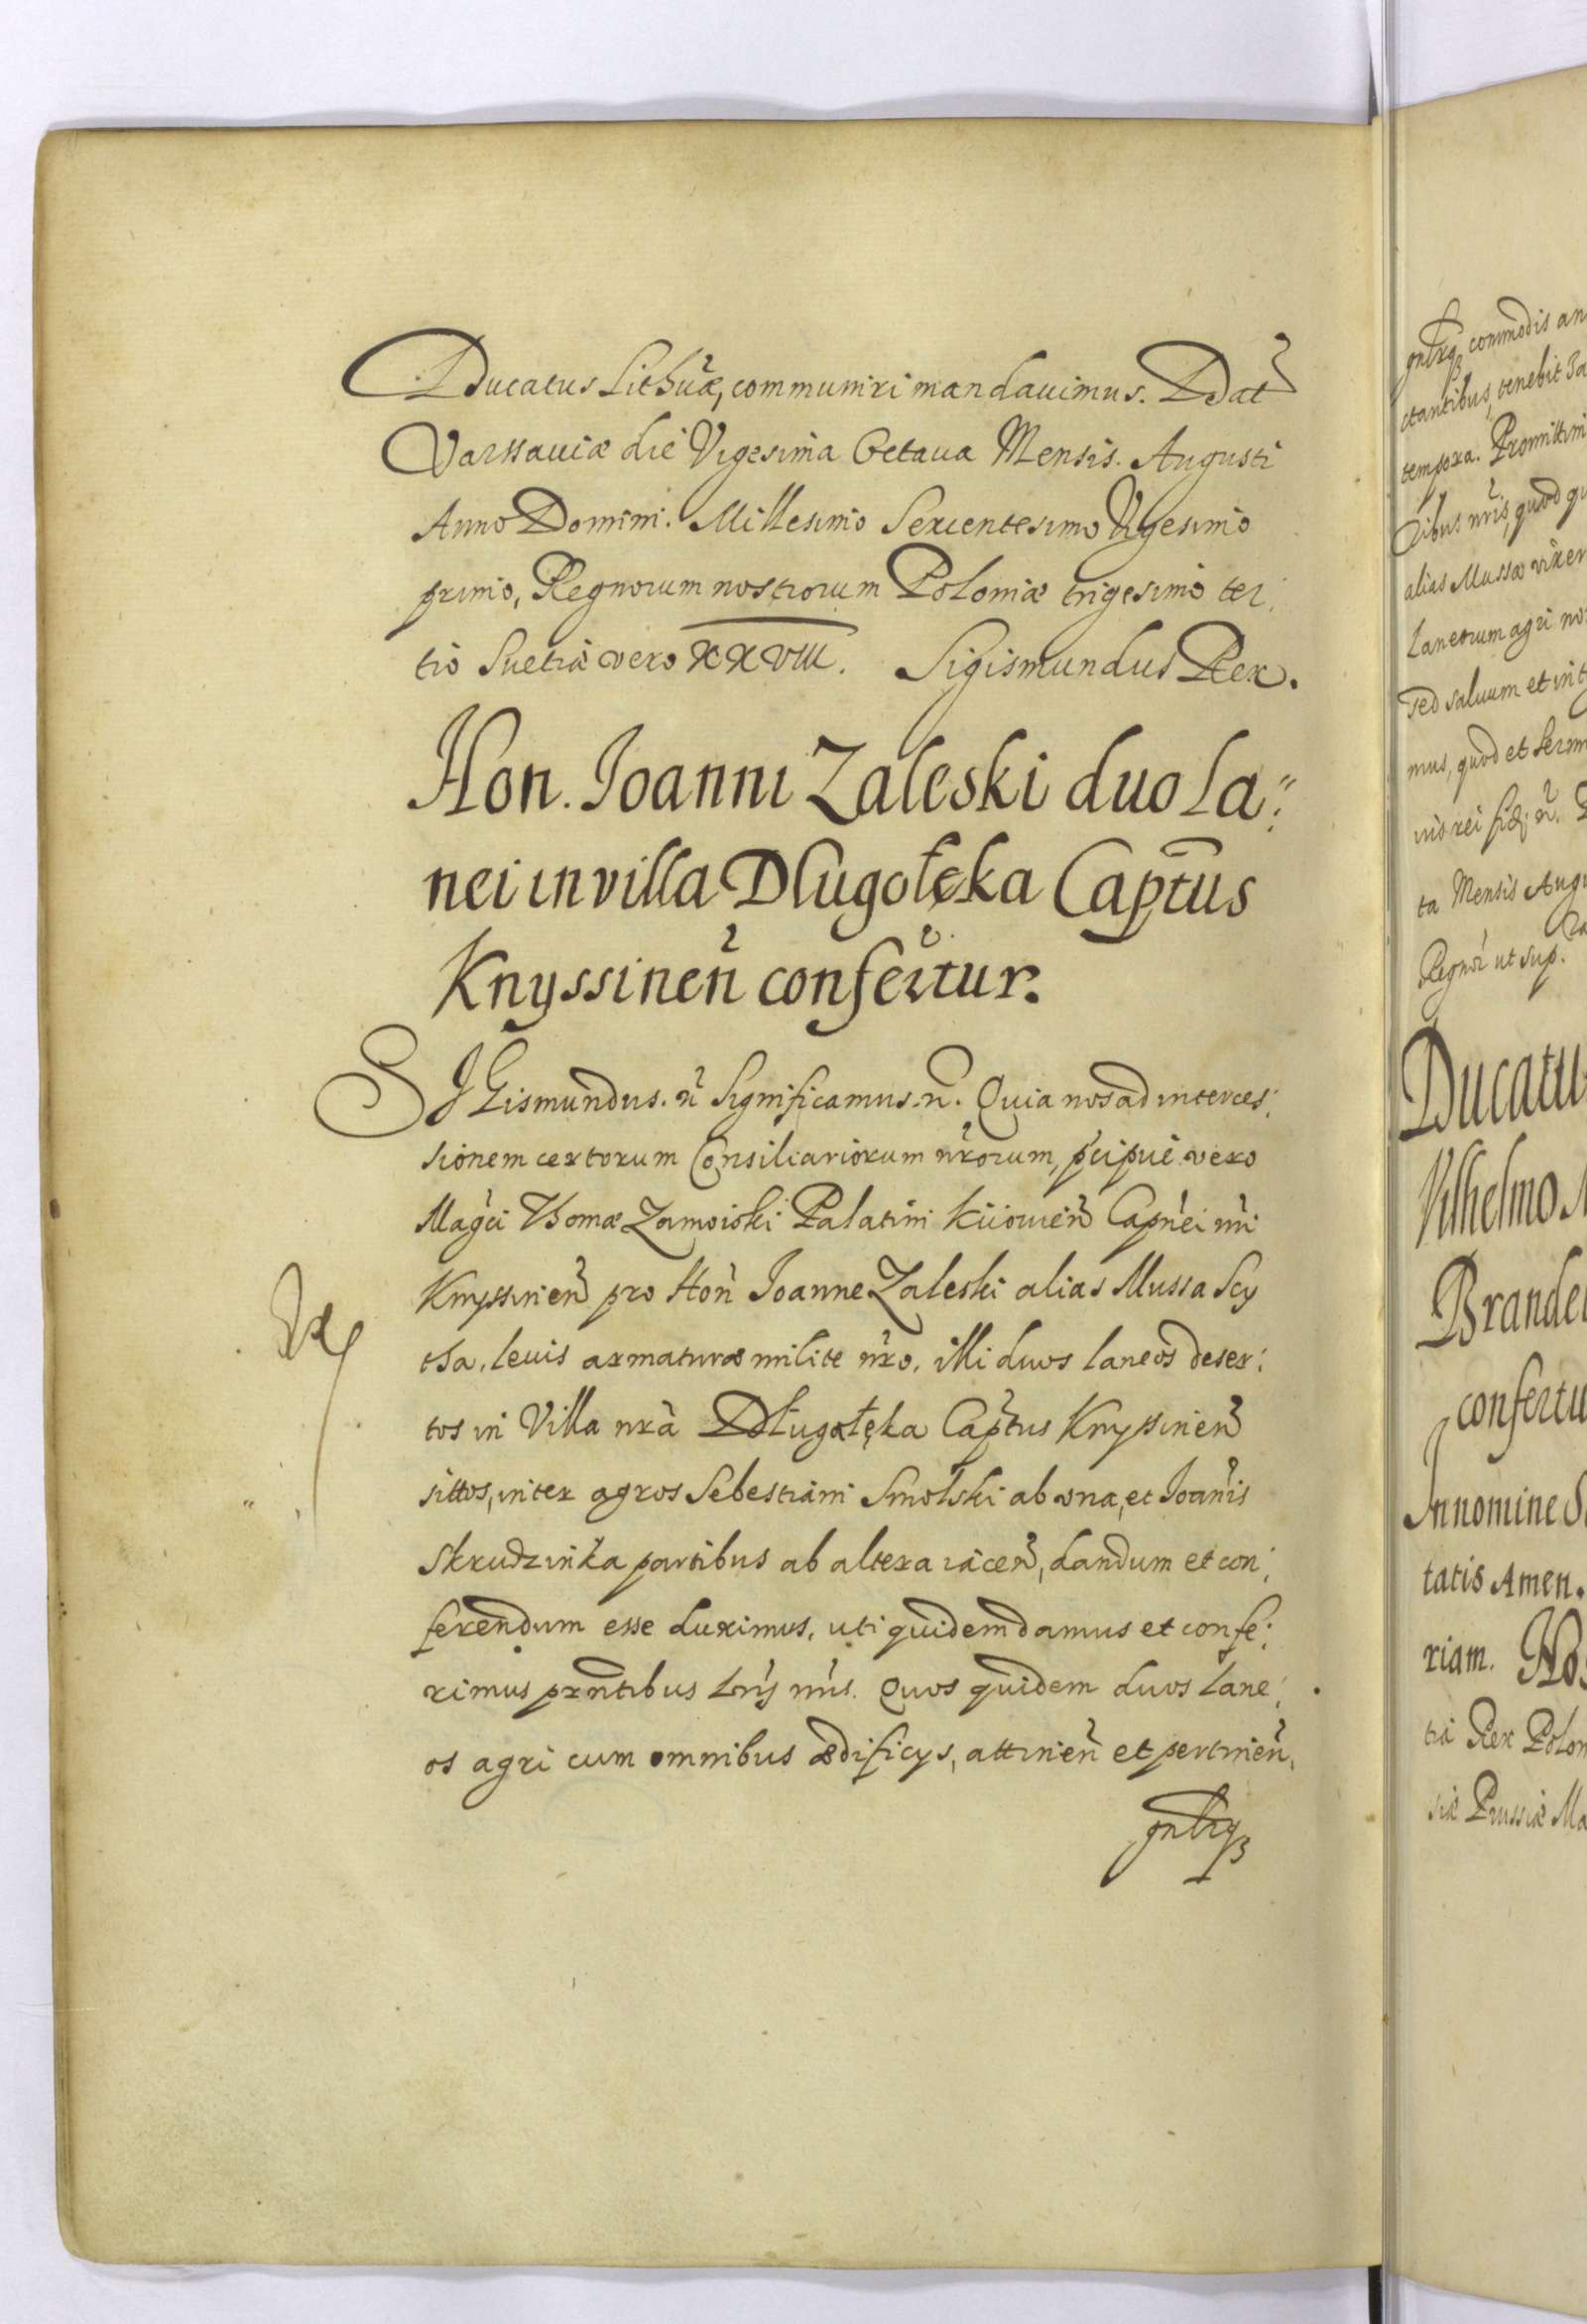 Ducatus Lithuæ, communiri mandauimus. Dat
Varssauiæ die Vigesima Octaua Mensis. Augusti
Anno Domini. Millesimo Sexcentesimo Vigesimo
primo, Regnorum nostrorum Poloniæ trigesimo ter:
tio Suetiæ vero XXVIII. Sigismundus Rex.
Hon. Ioanni Zaleski duo la:
nei in villa Dlugołęka Captus
Knyssinen confertur.
SIGismundus. n Significamus. n. Quia nos ad interces:
sionem certorum Consiliariorum nrorum, pcipue vero
Magci Thomæ Zamoiski Palatini Kiiouien Capnei nri
Knyssinen pro Hon Ioanne Zaleski alias Mussa Scy
tha, leuis armaturæ milite nro. illi duos laneos deser:
tos in Villa nra Długołęka Captus Knyssinen
sittos, inter agros Sebestiani Smolski ab vna, et Ioanis
Skrudzinka partibus ab altera iacen, dandum et con:
ferendum esse duximus, uti quidem damus et confe:
rimus prntibus lris nris. Quos quidem duos lane:
os agri cum omnibus ædificys, attinen et pertinen,
gnlrq3
gnlrq3 commodis an
ctantibus, tenebit
tempora. Promittim
ribus nris, quod qu
alias Mussæ vixer
laneorum agri no
sed saluum et int
mus, quod et Serm
uis rei fid: n.
ta Mensis Augu
Regnor ut sup.
Ducatu
Vilhelmo
Brande
confertu
In nomine S
tatis Amen.
riam. Nos
tiæ Rex Polon
siæ Prussiæ Ma